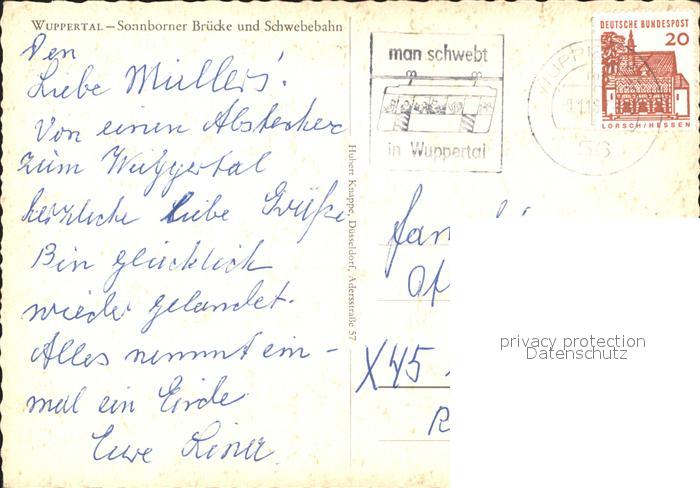 WUPPERTAL – Sonnborner Brücke und Schwebebahn
Den
Liebe Müllers!
Von einen Abstecher
zum Wuppertal
herzliche liebe Grüße
Bin glücklich
wieder gelandet.
Alles nimmt ein-
mal ein Ende
Eure
Hubert Knappe, Düsseldorf, Adersstraße 57
man schwebt
in Wuppertal
WUPPE
56
DEUTSCHE BUNDESPOST
20
LORSCH/HESSEN
Fam
X45
privacy protection
Datenschutz